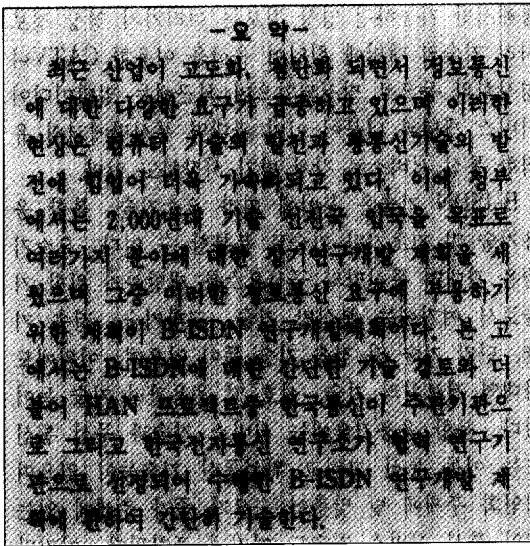 -요 약-
최근 산업이 고도화, 첨단화 되면서 정보통신
에 대한 다양한 요구가 급증하고 있으며 이러한
현상은 컴퓨터 기술의 발전과 광통신기술의 발
전에 힘입어 더욱 가속화되고 있다. 이에 정부
에서는 2,000년대 기술 선진국 진입을 목표로
여러가지 분야에 대한 장기연구개발 계획을 세
웠으며 그중 이러한 정보통신 요구에 부응하기
위한 계획이 B-ISDN 연구개발계획이다. 본 고
에서는 B-ISDN에 대한 간단한 기술 검토와 더
불어 HAN 프로젝트중 한국통신이 주관기관으
로 그리고 한국전자통신 연구소가 협력 연구기
관으로 선정되어 수행할 B-ISDN 연구개발 계
획에 관하여 간단히 기술한다.